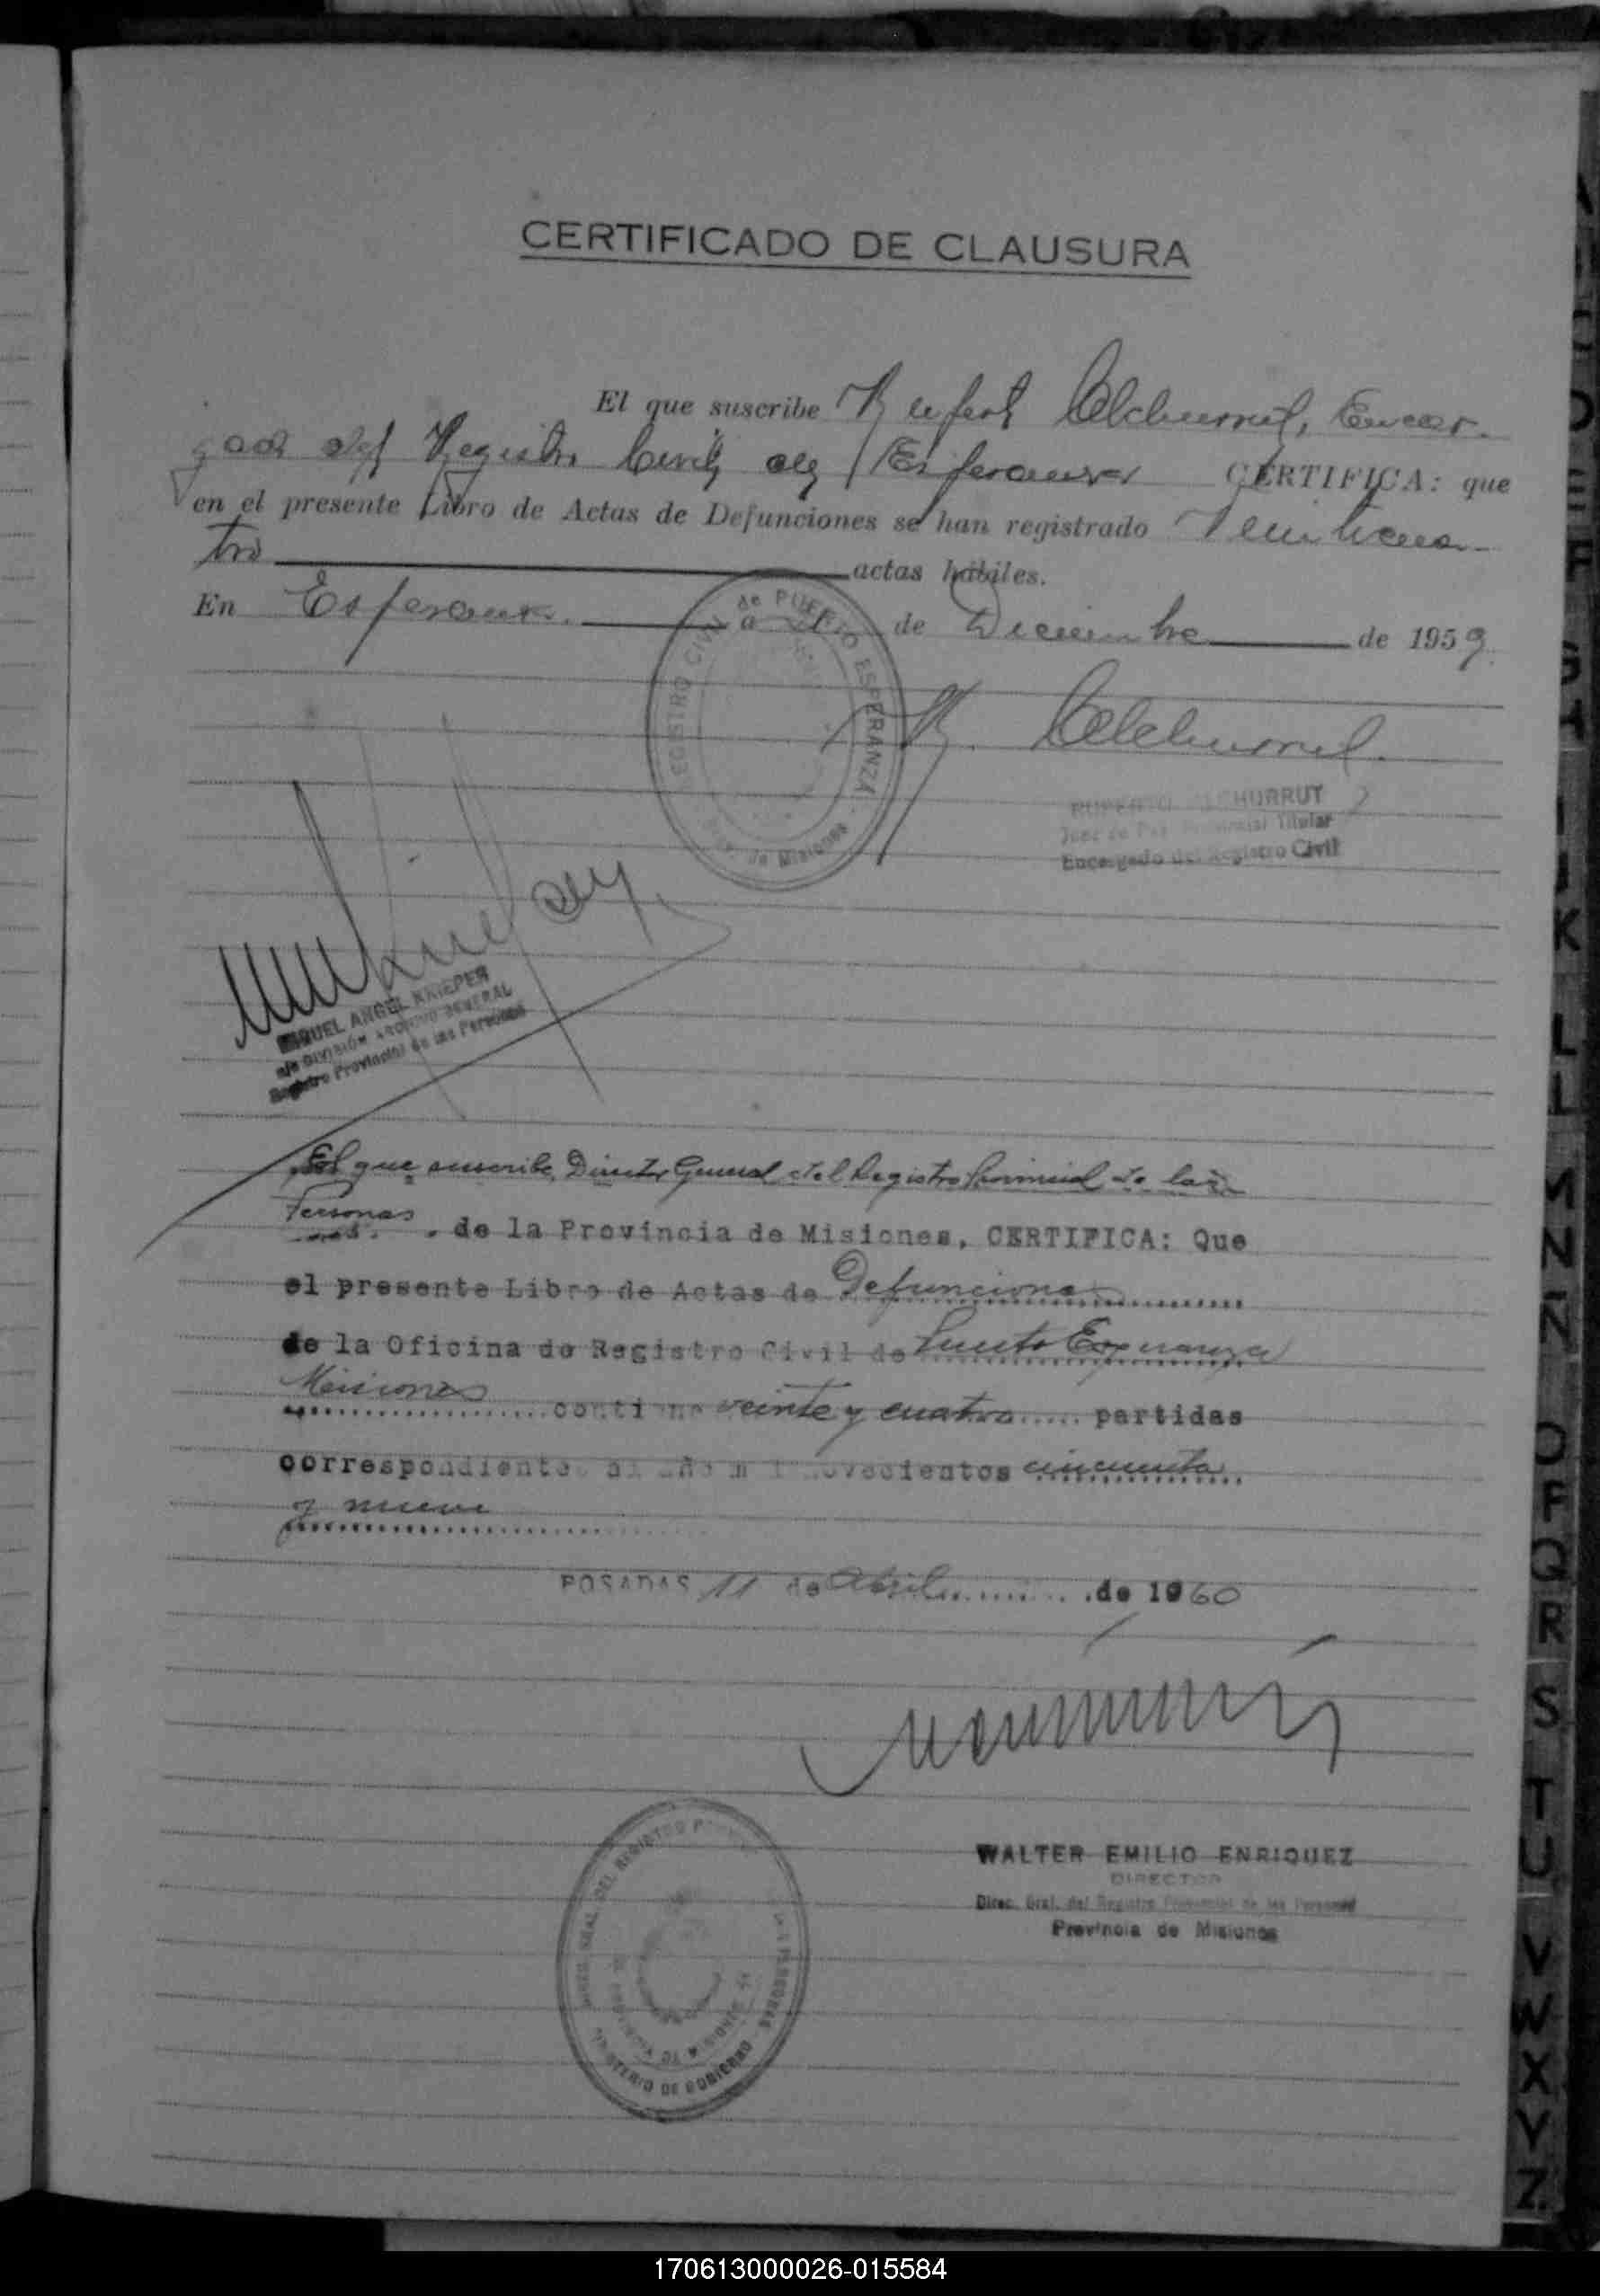 CERTIFICADO DE CLAUSURA
El que suscribe Ruperto Alchurrut, Encar-
gado del Registro Civil de Pto Esperanza CERTIFICA: que
en el presente Libro de Actas de Defunciones se han registrado Veinticua-
tro actas hábiles.
En Esperanza a 31 de Diciembre de 1959
REGISTRO CIVIL de PUERTO ESPERANZA
de Misiones
R. Alchurrut
RUPERTO ALCHURRUT
Juez de Paz Provincial Titular
Encargado del Registro Civil
MIGUEL ANGEL KNIEPER
DIVISIÓN ARCHIVO GENERAL
Registro Provincial de las Personas
El que suscribe, Director General del Registro Provincial de las
Personas, de la Provincia de Misiones, CERTIFICA: Que
el presente Libro de Actas de Defunciones
de la Oficina de Registro Civil de Puerto Esperanza
Misiones contiene veinte y cuatro partidas
correspondientes al año mil novecientos cincuenta
y nueve
POSADAS 11 de Abril de 1960
WALTER EMILIO ENRIQUEZ
DIRECTOR
Direc. Gral. del Registro Provincial de las Personas
Provincia de Misiones
DEL REGISTRO DE LAS PERSONAS
MINISTERIO DE GOBIERNO
K
L
LL
M
N
Ñ
O
P
Q
R
S
T
U
V
W
X
Y
Z
170613000026-015584